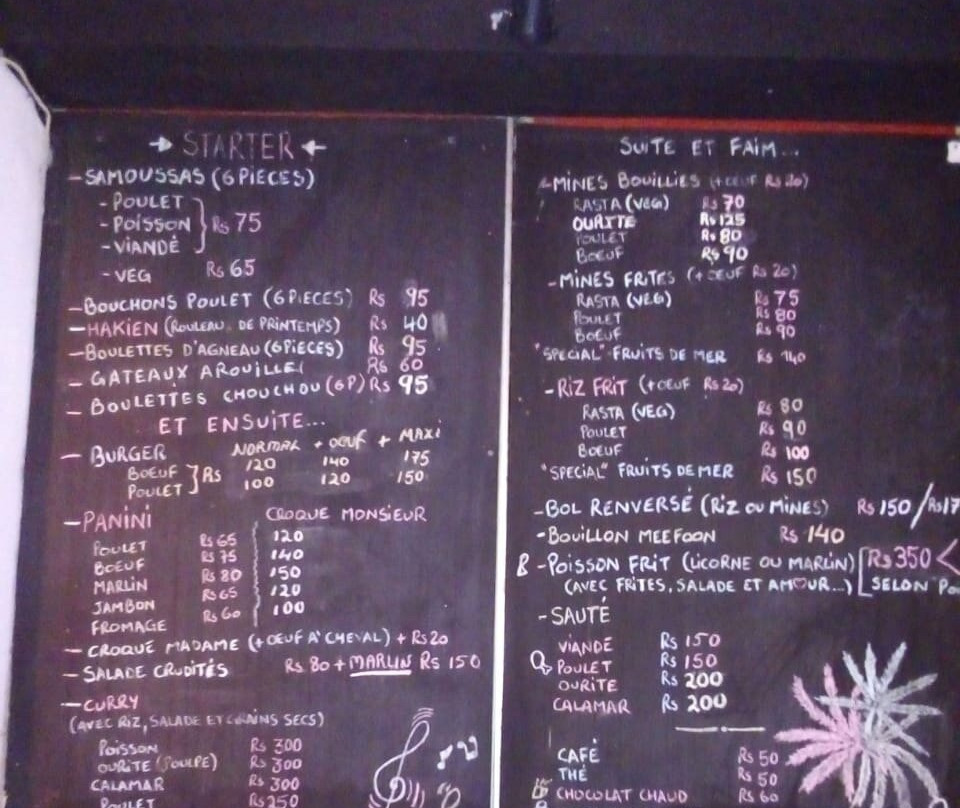 → STARTER ←
- SAMOUSSAS (6 PIECES)
- POULET
- POISSON } Rs 75
- VIANDE
- VEG Rs 65
- BOUCHONS POULET (6 PIECES) Rs 95
- HAKIEN (ROULEAU DE PRINTEMPS) Rs 40
- BOULETTES D'AGNEAU (6 PIECES) Rs 95
- GATEAUX AROUILLE Rs 60
- BOULETTES CHOUCHOU (6P) Rs 95
ET ENSUITE...
- BURGER NORMAL + OEUF + MAXI
BOEUF } Rs 120 140 175
POULET 100 120 150
- PANINI CROQUE MONSIEUR
POULET Rs 65 120
BOEUF Rs 75 140
MARLIN Rs 80 150
JAMBON Rs 65 120
FROMAGE Rs 60 100
- CROQUE MADAME (+ OEUF A' CHEVAL) + Rs 20
- SALADE CRUDITÉS Rs 80 + MARLIN Rs 150
- CURRY
(AVEC RIZ, SALADE ET GRAINS SECS)
POISSON Rs 300
OURITE (POULPE) Rs 300
CALAMAR Rs 300
POULET Rs 250
SUITE ET FAIM...
- MINES BOUILLIES (+ OEUF Rs 20)
RASTA (VEG) Rs 70
OURITE Rs 125
POULET Rs 80
BOEUF Rs 90
- MINES FRITES (+ OEUF Rs 20)
RASTA (VEG) Rs 75
POULET Rs 80
BOEUF Rs 90
"SPECIAL" FRUITS DE MER Rs 140
- RIZ FRIT (+ OEUF Rs 20)
RASTA (VEG) Rs 80
POULET Rs 90
BOEUF Rs 100
"SPECIAL" FRUITS DE MER Rs 150
- BOL RENVERSÉ (RIZ OU MINES) Rs 150 / Rs 17
- BOUILLON MEEFOON Rs 140
- POISSON FRIT (LICORNE OU MARLIN) [Rs 350 <
(AVEC FRITES, SALADE ET AMOUR...) SELON
- SAUTÉ
VIANDE Rs 150
POULET Rs 150
OURITE Rs 200
CALAMAR Rs 200
CAFÉ Rs 50
THÉ Rs 50
CHOCOLAT CHAUD Rs 60